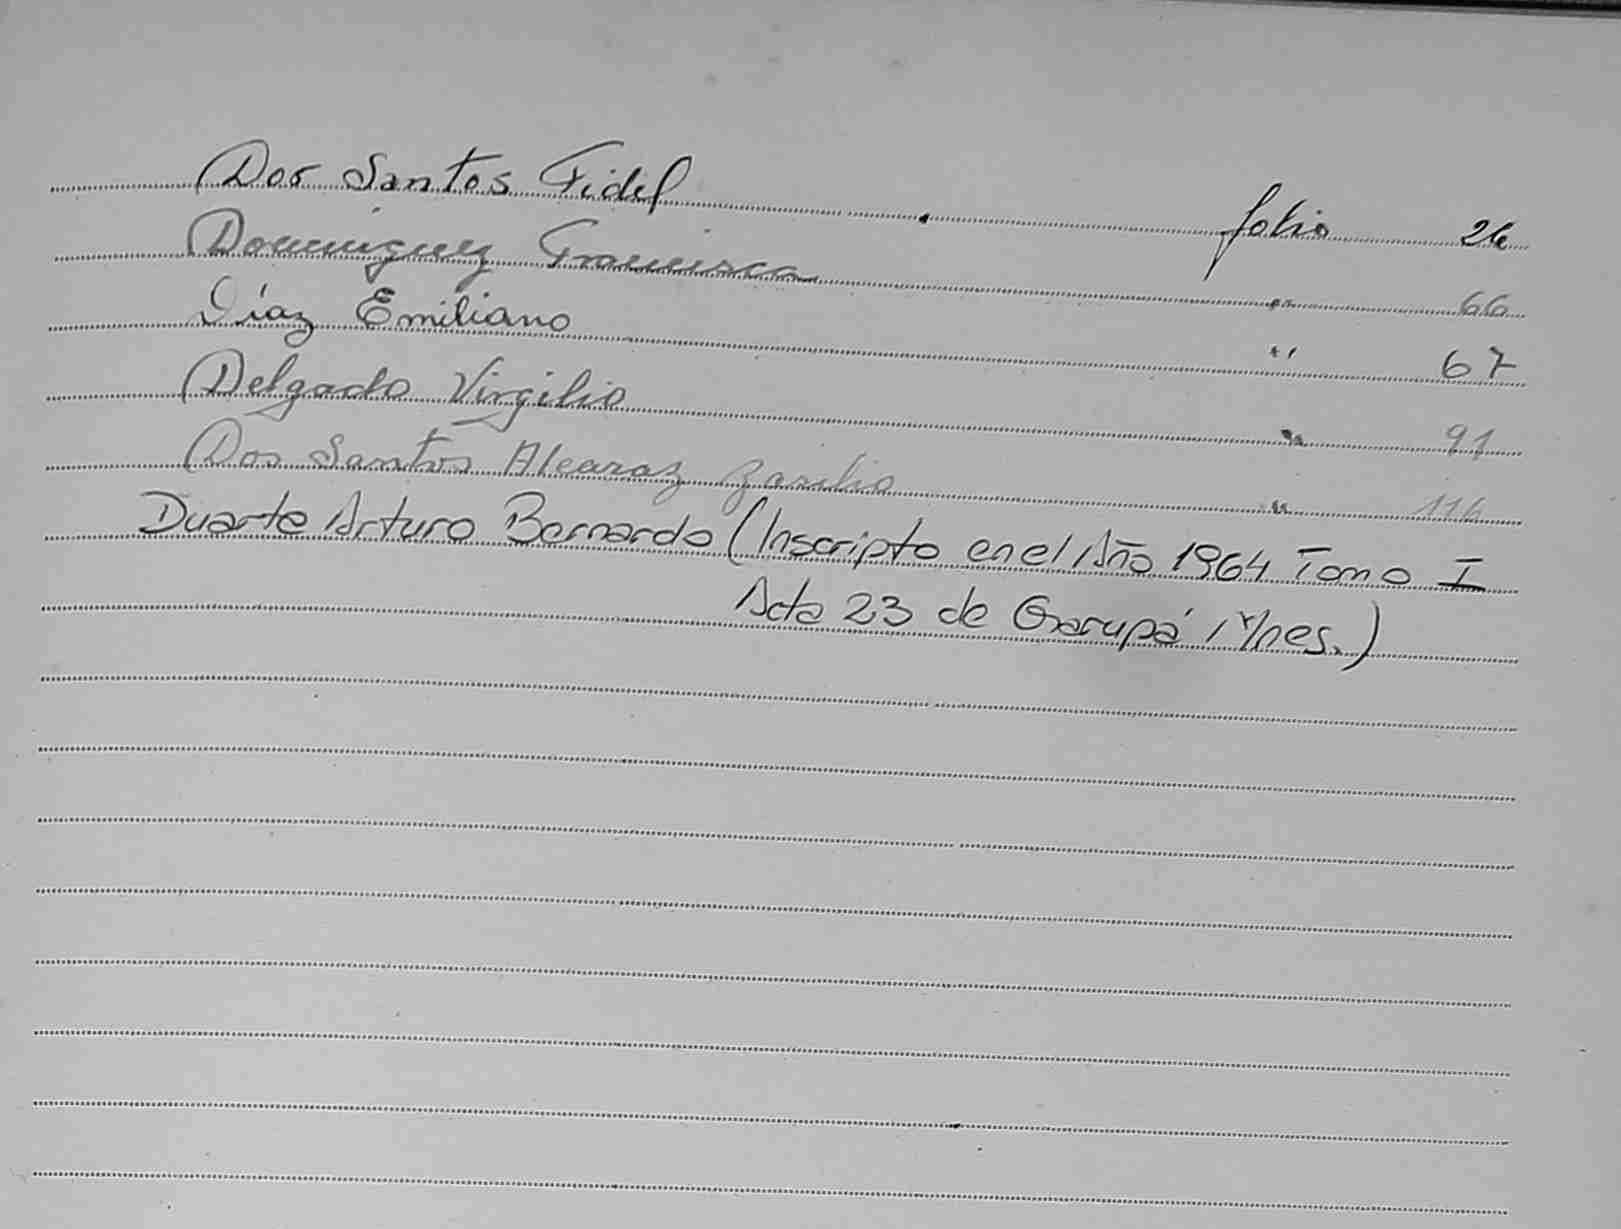 Dos Santos Fidel folio 26
Dominguez Francisca " 66
Díaz Emiliano " 67
Delgado Virgilio " 91
Dos Santos Alcaraz " 116
Duarte Arturo Bernardo (Inscripto en el Año 1964 Tomo I
Acta 23 de Garupá, Mnes.)